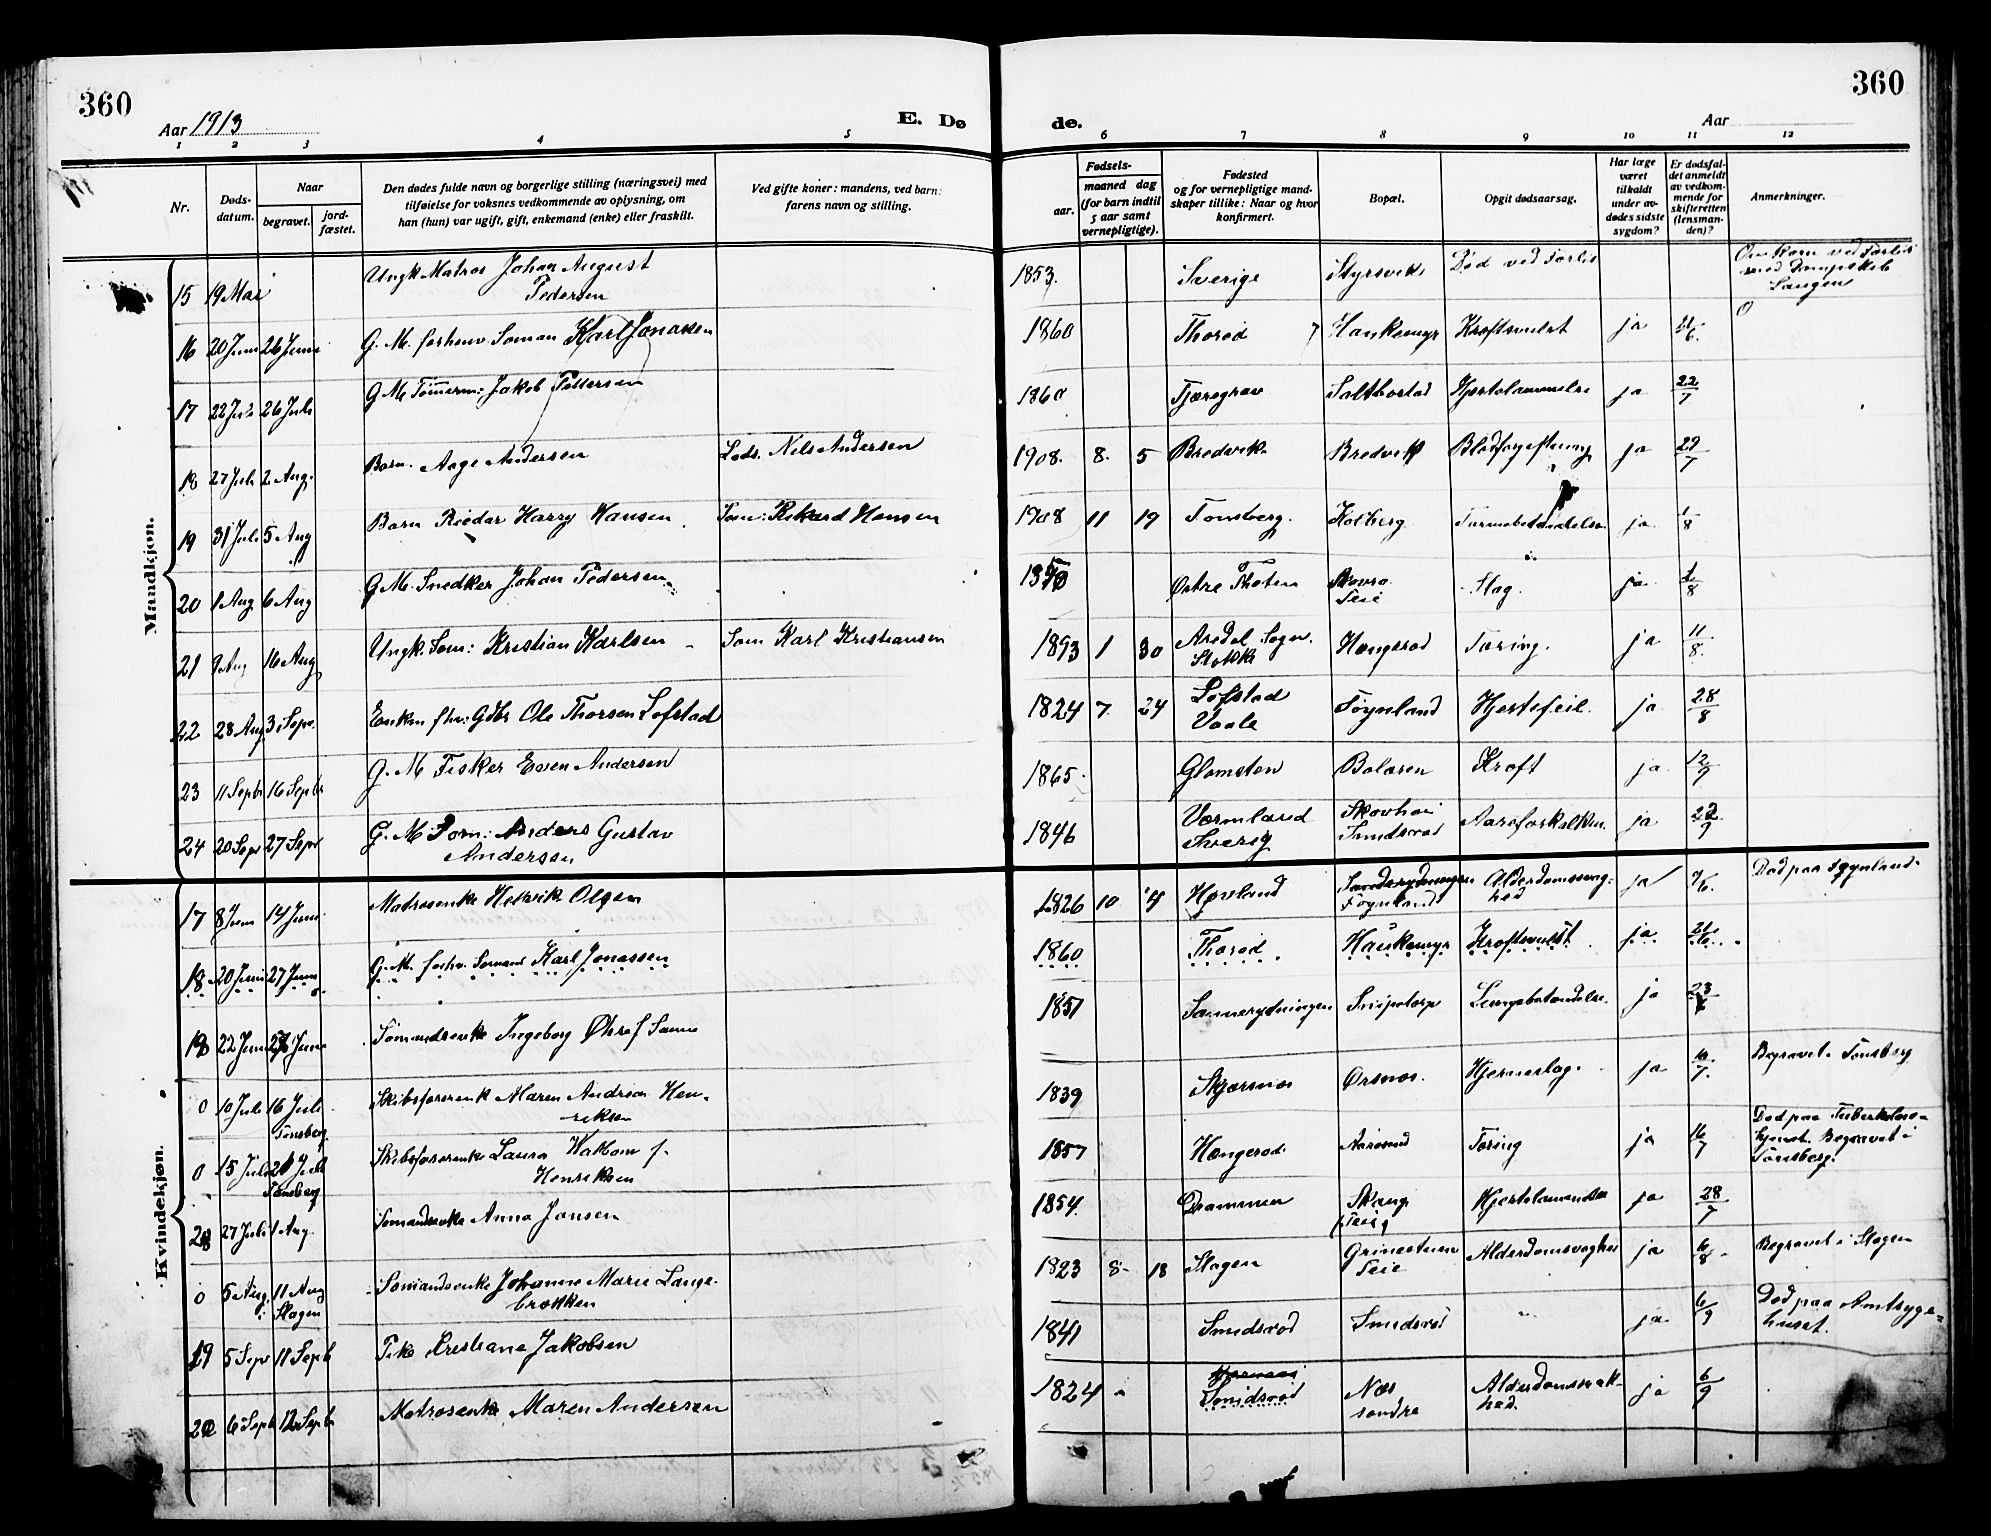 360
360
Aar 1913
E. Dø
de.
Aar
1 2 3 4 5 6 7 8 9 10 11 12
Nr.
Døds-
datum.
Naar
begravet.
jord-
fæstet.
Den dødes fulde navn og borgerlige stilling (næringsvei) med
tilføielse for voksnes vedkommende av oplysning, om
han (hun) var ugift, gift, enkemand (enke) eller fraskilt.
Ved gifte koner: mandens, ved barn:
farens navn og stilling.
Fødsels-
aar.
maaned dag
(for barn indtil
5 aar samt
vernepligtige).
Fødested
og for vernepligtige mand-
skaper tillike: Naar og hvor
konfirmert.
Bopæl.
Opgit dødsaarsag.
Har læge
været
tilkaldt
under av-
dødes sidste
sygdom?
Er dødsfal-
det anmeldt
av vedkom-
mende for
skifteretten
(lensman-
den)?
Anmerkninger.
Mandkjøn.
15 19 Mai Ungk. Matros Johan August
Pedersen 1853. Sverige Styrsvik Død ved Forlis Omkom ved Forlis
med Dampskib
16 20 Juni 26 Juni G. M. forhenv. Søman Karl Jonassen 1860 Thorød Haukemyr Kræftsvulst ja 21/6.
17 22 Juli 26 Juli G M Tømmerm: Jakob Pettersen 1860 Tjæregrav Saltbostad Hjertelammelse ja 22/7
18 27 Juli 2 Aug. Barn. Aage Andersen Lods. Nils Andersen 1908. 8. 5 Bredvik Bredvik Blodforgiftning ja 29/7
19 31 Juli 5 Aug Barn Reidar Harry Hansen Søm: Rikard Hansen 1908 11 19 Tønsberg. Kolberg. Tarmbetændelse ja 1/8
20 1 Aug 6 Aug G. M. Snedker Johan Pedersen Østre Thoten Teie Slag. ja 2/8
21 9 Aug 16 Aug Ungk. Søm: Kristian Karlsen Søm Karl Kristiansen 1893 1 30 Arødel Sogn. Hængsrød Tæring. ja 11/8.
22 28 Aug 3 Sept. Enkm. fhv: Gdbr Ole Thorsen Løfstad 1824 7. 24 Løfstad
Vaale Føynland Hjertefeil. ja 28/8
23 11 Septbr 16 Septbr G. M Fisker Even Andersen 1865. Glomsten Bolæren Kræft ja 12/9
24 20 Sept 27 Sept G. M. Anders Gustav
Andersen 1846 Værmland
Sverig Skovhøi
Smidsrød Aareforkalkn. ja 22/9
Kvindekjøn.
17 8 Juni 14 Juni Matrosenke Helvik Olsen 1826 10 4 Føynland Alderdomssvag-
hed ja 9/6. Død paa Føynland.
18 20 Juni 27 Juni G. M. forhv. Sømand Karl Jonassen 1860 Thorød. Haukemyr Kræftsvulst. ja. 21/6.
22 Juni Sømandsenke Ingeborg 1851 Sannerydningen Snipetorp Lungebetændelse. ja 23/6
0 10 Juli 16 Juli
Tønsberg Skibsførerenk Maren Andrea Hen-
riksen 1839 Skjærsnæs Ørsnæs. Hjerneslag. ja 10/7. Begravet. Tønsberg
0 15 Juli 21 Juli
Tønsberg Skibsførerenke Laura f.
Henriksen 1857 Hængsrød. Aarøsund Tæring ja 16/7 Død paa Tuberkulose-
hjemt. Begravet i
Tønsberg.
27 Juli 1 Aug. Sømandsenke Anna Jansen 1854. Drammen Teig Hjertelammelse ja 28/7
0 5 Aug. 11 Aug
Slagen Sømandsenke Johanne Marie Lange-
brækken 1823 8 18 Slagen Grinestuen
Teie Alderdomsvaghed ja 6/8 Begravet i Slagen
19 5 Sept 11 Septb Pike Kristiane Jakobsen 1841 Smidsrød Smidsrød " ja 6/9 Død paa Amtsyge-
huset.
20 6 Septb 12 Septb Matrosenke Maren Andersen 1824 Smidsrød Næs
søndre Alderdomssvak-
hed. ja 6/9